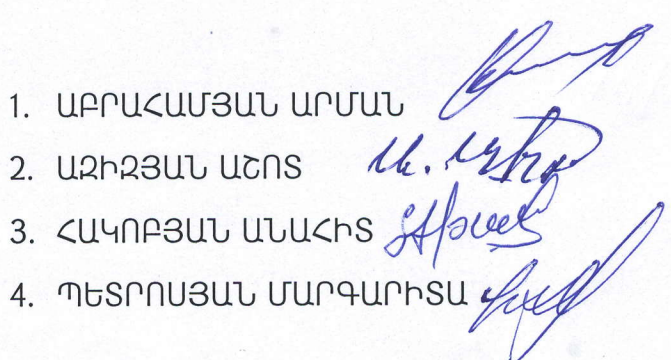 1. ԱԲՐԱՀԱՄՅԱՆ ԱՐՄԱՆ
2. ԱԶԻԶՅԱՆ ԱՇՈՏ
3. ՀԱԿՈԲՅԱՆ ԱՆԱՀԻՏ
4. ՊԵՏՐՈՍՅԱՆ ՄԱՐԳԱՐԻՏԱ